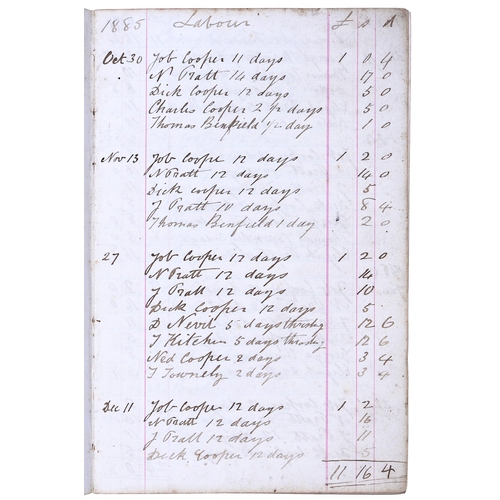 1885 Labour £ s d
Oct 30 Job Cooper 11 days 1 0 4
N Pratt 14 days 17 0
Dick Cooper 12 days 5 0
Charles Cooper 2 1/2 days 5 0
Thomas Binfield 1/2 day 1 0
Nov 13 Job Cooper 12 days 1 2 0
N Pratt 12 days 14 0
Dick Cooper 12 days 5
J Pratt 10 days 8 4
Thomas Binfield 1 day 2 0
27 Job Cooper 12 days 1 2 0
N Pratt 12 days 14
J Pratt 12 days 10
Dick Cooper 12 days 5
D Nevil 5 days thrashing 12 6
T Kitchen 5 days thrashing 12 6
Ned Cooper 2 days 3 4
T Townely 2 days 3 4
Dec 11 Job Cooper 12 days 1 2
N Pratt 12 days 16
J Pratt 12 days 11
Dick Cooper 12 days 5
11 16 4